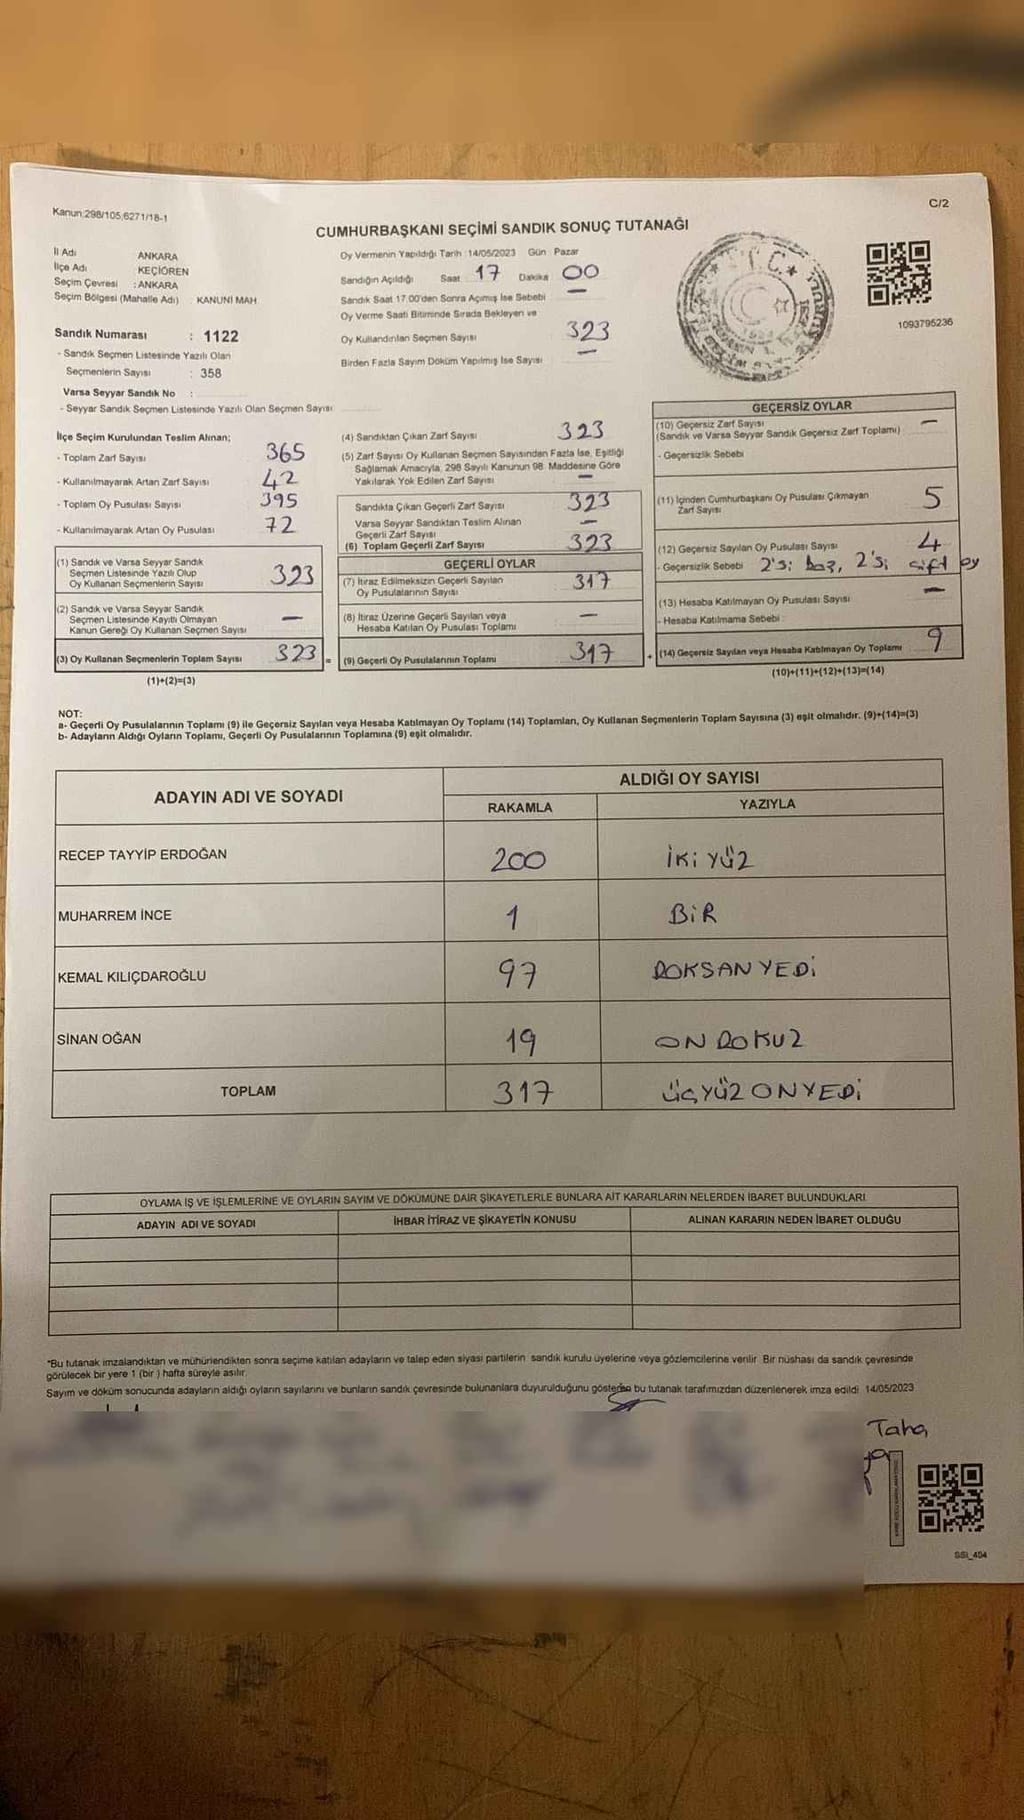 Kanun;298/105;6271/18-1
C/2
CUMHURBAŞKANI SEÇİMİ SANDIK SONUÇ TUTANAĞI
İl Adı ANKARA
İlçe Adı KEÇİÖREN
Seçim Çevresi : ANKARA
Seçim Bölgesi (Mahalle Adı) : KANUNI MAH
Sandık Numarası : 1122
- Sandık Seçmen Listesinde Yazılı Olan
Seçmenlerin Sayısı : 358
Varsa Seyyar Sandık No :
- Seyyar Sandık Seçmen Listesinde Yazılı Olan Seçmen Sayısı
Oy Vermenin Yapıldığı Tarih :14/05/2023 Gün Pazar
Sandığın Açıldığı Saat 17 Dakika 00
Sandık Saat 17.00'den Sonra Açımış İse Sebebi —
Oy Verme Saati Bitiminde Sırada Bekleyen ve
Oy Kullandırılan Seçmen Sayısı 323
Birden Fazla Sayım Döküm Yapılmış İse Sayısı —
1093795236
İlçe Seçim Kurulundan Teslim Alınan;
- Toplam Zarf Sayısı 365
- Kullanılmayarak Artan Zarf Sayısı 42
- Toplam Oy Pusulası Sayısı 395
- Kullanılmayarak Artan Oy Pusulası 72
(1) Sandık ve Varsa Seyyar Sandık
Seçmen Listesinde Yazılı Olup
Oy Kullanan Seçmenlerin Sayısı 323
(2) Sandık ve Varsa Seyyar Sandık
Seçmen Listesinde Kayıtlı Olmayan
Kanun Gereği Oy Kullanan Seçmen Sayısı —
(3) Oy Kullanan Seçmenlerin Toplam Sayısı 323 =
(1)+(2)=(3)
(4) Sandıktan Çıkan Zarf Sayısı 323
(5) Zarf Sayısı Oy Kullanan Seçmen Sayısından Fazla İse, Eşitliği
Sağlamak Amacıyla, 298 Sayılı Kanunun 98. Maddesine Göre
Yakılarak Yok Edilen Zarf Sayısı —
Sandıkta Çıkan Geçerli Zarf Sayısı 323
Varsa Seyyar Sandıktan Teslim Alınan
Geçerli Zarf Sayısı —
(6) Toplam Geçerli Zarf Sayısı 323
GEÇERLİ OYLAR
(7) İtiraz Edilmeksizin Geçerli Sayılan
Oy Pusulalarının Sayısı 317
(8) İtiraz Üzerine Geçerli Sayılan veya
Hesaba Katılan Oy Pusulası Toplamı —
(9) Geçerli Oy Pusulalarının Toplamı 317 +
GEÇERSİZ OYLAR
(10) Geçersiz Zarf Sayısı —
(Sandık ve Varsa Seyyar Sandık Geçersiz Zarf Toplamı)
- Geçersizlik Sebebi
(11) İçinden Cumhurbaşkanı Oy Pusulası Çıkmayan
Zarf Sayısı 5
(12) Geçersiz Sayılan Oy Pusulası Sayısı 4
- Geçersizlik Sebebi 2'si boş, 2'si çift oy
(13) Hesaba Katılmayan Oy Pusulası Sayısı —
- Hesaba Katılmama Sebebi
(14) Geçersiz Sayılan veya Hesaba Katılmayan Oy Toplamı 9
(10)+(11)+(12)+(13)=(14)
NOT:
a- Geçerli Oy Pusulalarının Toplamı (9) ile Geçersiz Sayılan veya Hesaba Katılmayan Oy Toplamı (14) Toplamları, Oy Kullanan Seçmenlerin Toplam Sayısına (3) eşit olmalıdır. (9)+(14)=(3)
b- Adayların Aldığı Oyların Toplamı, Geçerli Oy Pusulalarının Toplamına (9) eşit olmalıdır.
ADAYIN ADI VE SOYADI ALDIĞI OY SAYISI
RAKAMLA YAZIYLA
RECEP TAYYİP ERDOĞAN 200 İKİ YÜZ
MUHARREM İNCE 1 BİR
KEMAL KILIÇDAROĞLU 97 DOKSAN YEDİ
SİNAN OĞAN 19 ON DOKUZ
TOPLAM 317 ÜÇYÜZ ONYEDİ
OYLAMA İŞ VE İŞLEMLERİNE VE OYLARIN SAYIM VE DÖKÜMÜNE DAİR ŞİKAYETLERLE BUNLARA AİT KARARLARIN NELERDEN İBARET BULUNDUKLARI
ADAYIN ADI VE SOYADI İHBAR İTİRAZ VE ŞİKAYETİN KONUSU ALINAN KARARIN NEDEN İBARET OLDUĞU
*Bu tutanak imzalandıktan ve mühürlendikten sonra seçime katılan adayların ve talep eden siyasi partilerin sandık kurulu üyelerine veya gözlemcilerine verilir. Bir nüshası da sandık çevresinde
görülecek bir yere 1 (bir ) hafta süreyle asılır.
Sayım ve döküm sonucunda adayların aldığı oyların sayılarını ve bunların sandık çevresinde bulunanlara duyurulduğunu gösteren bu tutanak tarafımızdan düzenlenerek imza edildi. 14/05/2023
Taha
SSI_404